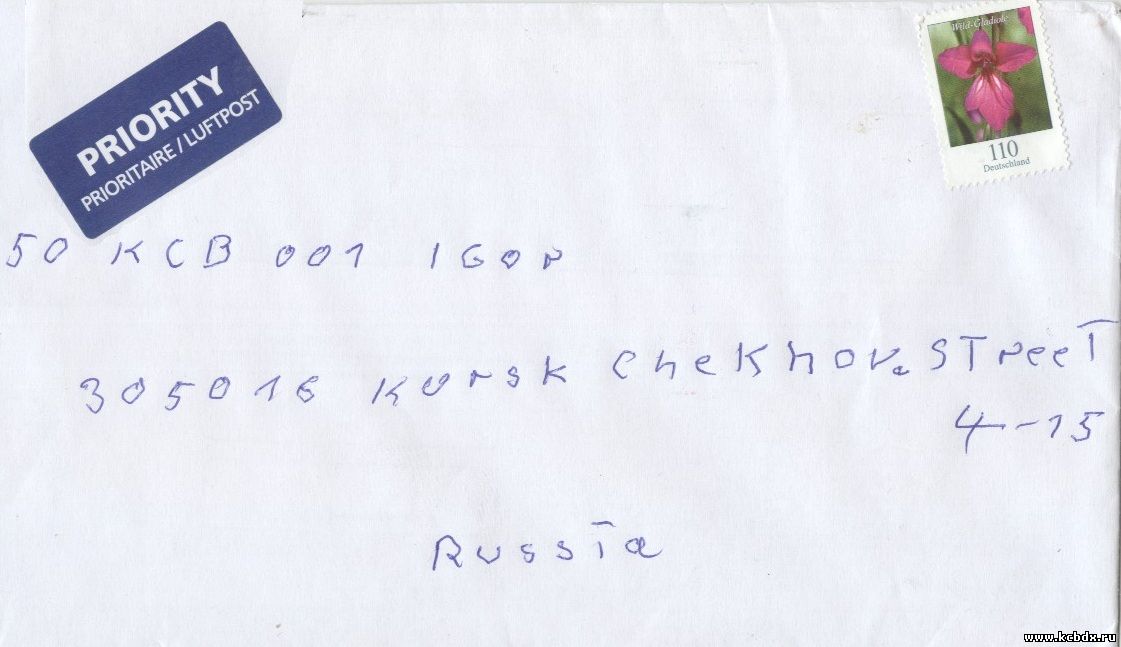 PRIORITY
PRIORITAIRE / LUFTPOST
Wild-Gladiole
110
Deutschland
50 KCB 001 IGor
305016 Kursk CheKhova STreeT
4-15
RussIa
www.kcbdx.ru